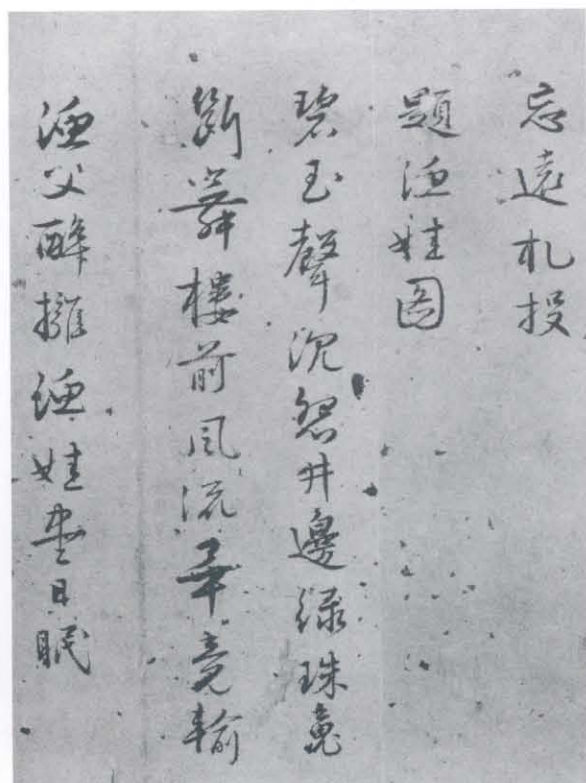 忘遠札投
題漁娃图
碧玉聲沉怨井邊緑珠魂
斷舞樓前風流畢竟輸
漁父醉擁漁娃盡日眠